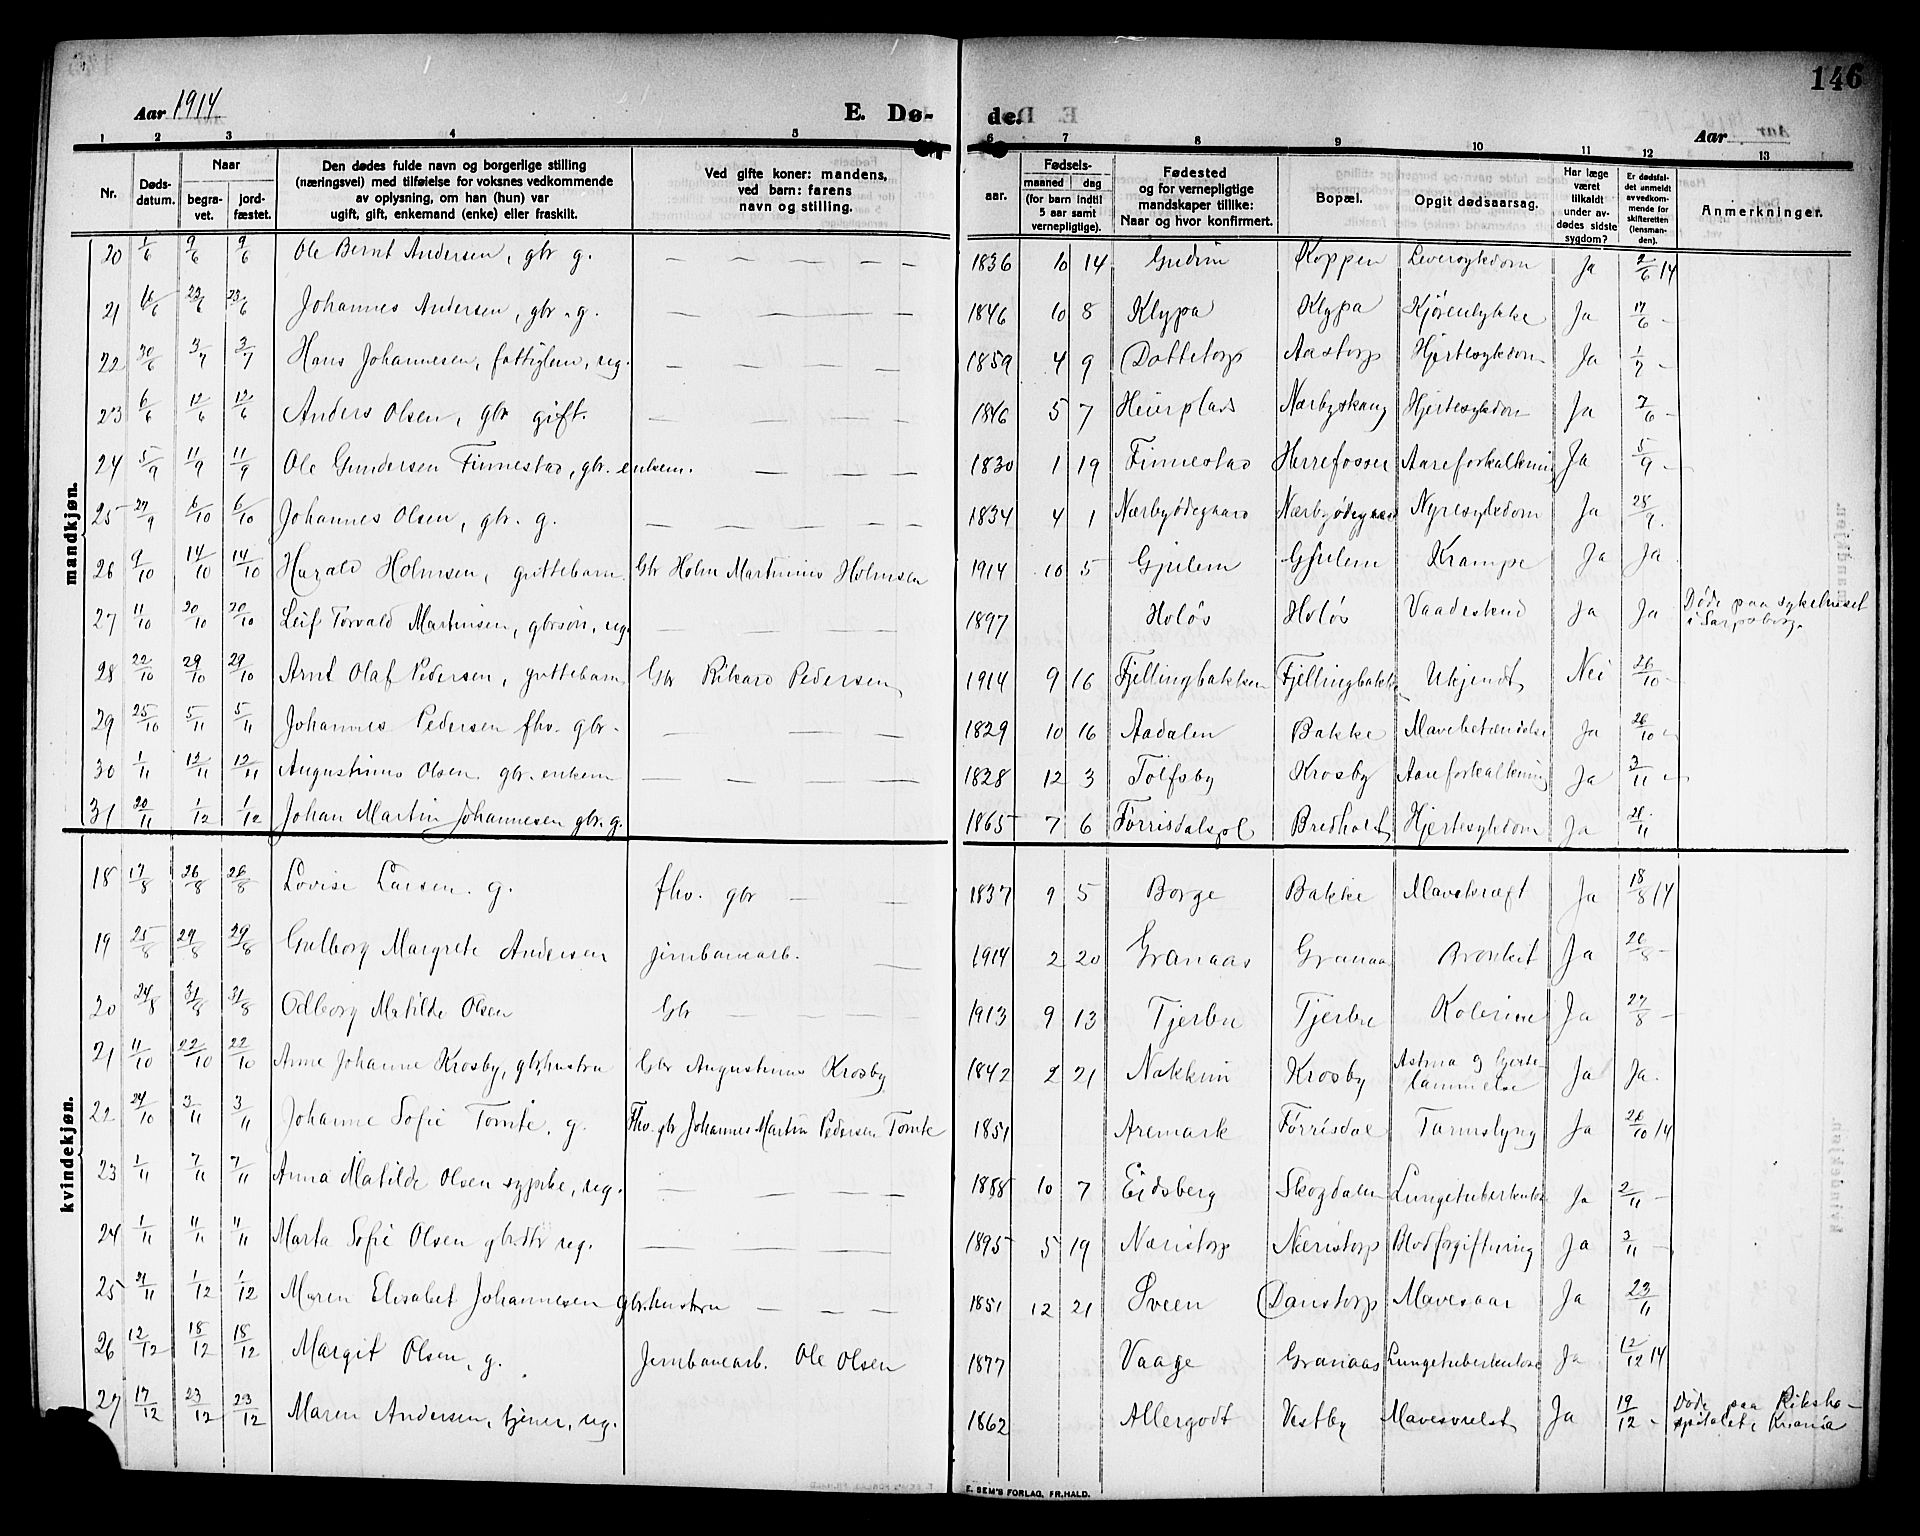 146
Aar 1914
E. Dø-
de.
Aar
1 2 3 4 5 6 7 8 9 10 11 12 13
Nr.
Døds-
datum.
Naar
begra-
vet.
jord-
fæstet.
Den dødes fulde navn og borgerlige stilling
(næringsvei) med tilføielse for voksnes vedkommende
av oplysning, om han (hun) var
ugift, gift, enkemand (enke) eller fraskilt.
Ved gifte koner: mandens,
ved barn: farens
navn og stilling.
Fødsels-
aar.
maaned dag
(for barn indtil
5 aar samt
vernepligtige).
Fødested
og for vernepligtige
mandskaper tillike:
Naar og hvor konfirmert.
Bopæl.
Opgit dødsaarsag.
Har læge
været
tilkaldt
under av-
dødes sidste
sygdom?
Er dødsfal-
det anmeldt
av vedkom-
mende for
skifteretten
(lensman-
den).
Anmerkninger.
mandkjøn.
20 1/6 9/6 9/6 Ole Bernt Andersen, gbr g. — — — — — 1836 10 14 Gudim Koppen Leversykdom Ja 2/6 14
21 16/6 23/6 23/6 Johannes Andersen, gbr. g. — — — — 1846 10 8 Klypa Klypa Ja 17/6 –
22 30/6 3/7 3/7 Hans Johannesen, fattiglem, ug. — — — — 1859 4 9 Dottetorp Aastorp Hjertesykdom Ja 1/7 –
23 6/6 12/6 12/6 Anders Olsen, gbr gift. — — — — 1846 5 7 Heierplads Nærbyskaug Hjertesykdom Ja 7/6 –
24 5/9 11/9 11/9 Ole Gundersen Finnestad, gbr. enkem. — — — 1830 1 19 Finnestad Herrefosser Aareforkalkning Ja 5/9 –
25 27/9 6/10 6/10 Johannes Olsen, gbr. g. — — — — — 1834 4 1 Nærbyødegaard Nærbyødegaard Nyresykdom Ja 28/9.
26 9/10 14/10 14/10 Harald Holmsen, guttebarn Gbr Holm Martinius Holmsen 1914 10 5 Gjulem Gjulem Krampe Ja Ja
27 11/10 20/10 20/10 Leif Torvald Martinsen, gbrsøn, ug. — — — — 1897 Holøs Holøs Vaadeskud Ja Ja Døde paa sykehuset
i Sarpsborg.
28 22/10 29/10 29/10 Arnt Olaf Pedersen, guttebarn Gbr Rikard Pedersen 1914 9 16 Fjellingbakken Fjellingbakken Ukjendt Nei 26/10 –
29 25/10 5/11 5/11 Johannes Pedersen fhv. gbr. — — — 1829 10 16 Aadalen Bakke Mavebetændelse Ja 26/10
30 1/11 12/11 12/11 Augustinus Olsen gbr. enkem — — — — 1828 12 3 Tolfsby Krosby Aareforkalkning Ja 3/11
31 20/11 1/12 1/12 Johan Martin Johannesen gbr. g. 1865 7 6 Bredholt Hjertesykdom Ja 21/11
kvindekjøn.
18 17/8 26/8 26/8 Lovise Larsen. g. fhv. gbr — — 1837 9 5 Borge Bakke Mavekræft Ja 18/8 14
19 25/8 29/8 29/8 Gulborg Margrete Andersen jernbanearb. — 1914 2 20 Granaas Granaas Bronkit Ja 26/8 –
20 24/8 31/8 31/8 Odborg Matilde Olsen Gbr — — — — 1913 9 13 Tjerbu Tjerbu Kolerine Ja 27/8 –
21 11/10 22/10 22/10 Anne Johanne Krosby, gbrhustru Gbr Augustinus Krosby 1842 2 21 Nakkim Krosby Astma og hjerte-
lammelse Ja Ja.
22 24/10 3/11 3/11 Johanne Sofie Tomte, g. Fhv. gbr Johannes Martin Pedersen Tomte 1851 Aremark Førrisdal Tarmslyng Ja 26/10 14
23 1/11 7/11 7/11 Anna Matilde Olsen sypike, ug. — — — — 1888 10 7 Eidsberg Skogdalen Lungetuberkulose Ja 2/11 –
24 1/11 11/11 11/11 Marta Sofie Olsen gbrdtr ug. — — — — 1895 5 19 Næristorp Næristorp Blodforgiftning Ja 3/11 –
25 21/11 1/12 1/12 Maren Elisabet Johannesen gbr.hustru — — — 1851 12 21 Sveen Danstorp Mavesaar Ja 23/11
26 12/12 18/12 18/12 Margit Olsen, g. Jernbanearb. Ole Olsen 1877 Vaage Granaas Lungetuberkulose Ja 12/12 14
27 17/12 23/12 23/12 Maren Andersen, tjener, ug. 1862 Allergodt Vestby Mavesvulst Ja 19/12 – Døde paa Riksho-
spitalet, Kr.ania
E. SEM'S FORLAG, FR.HALD.